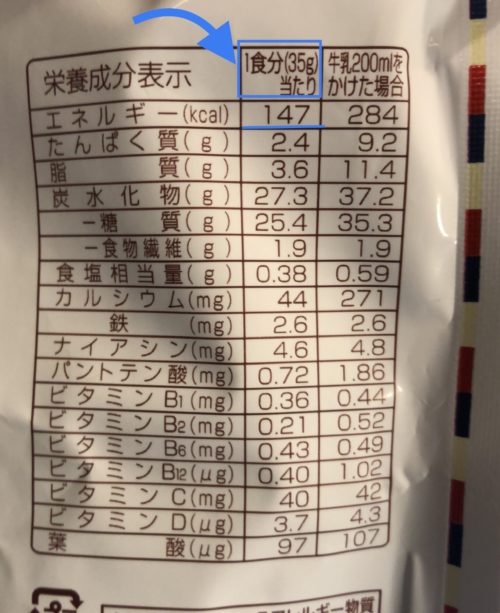 栄養成分表示 1食分(35g)当たり 牛乳200mlをかけた場合
エネルギー(kcal) 147 284
たんぱく質(g) 2.4 9.2
脂質(g) 3.6 11.4
炭水化物(g) 27.3 37.2
−糖質(g) 25.4 35.3
−食物繊維(g) 1.9 1.9
食塩相当量(g) 0.38 0.59
カルシウム(mg) 44 271
鉄(mg) 2.6 2.6
ナイアシン(mg) 4.6 4.8
パントテン酸(mg) 0.72 1.86
ビタミンB1(mg) 0.36 0.44
ビタミンB2(mg) 0.21 0.52
ビタミンB6(mg) 0.43 0.49
ビタミンB12(μg) 0.40 1.02
ビタミンC(mg) 40 42
ビタミンD(μg) 3.7 4.3
葉酸(μg) 97 107
アレルギー物質